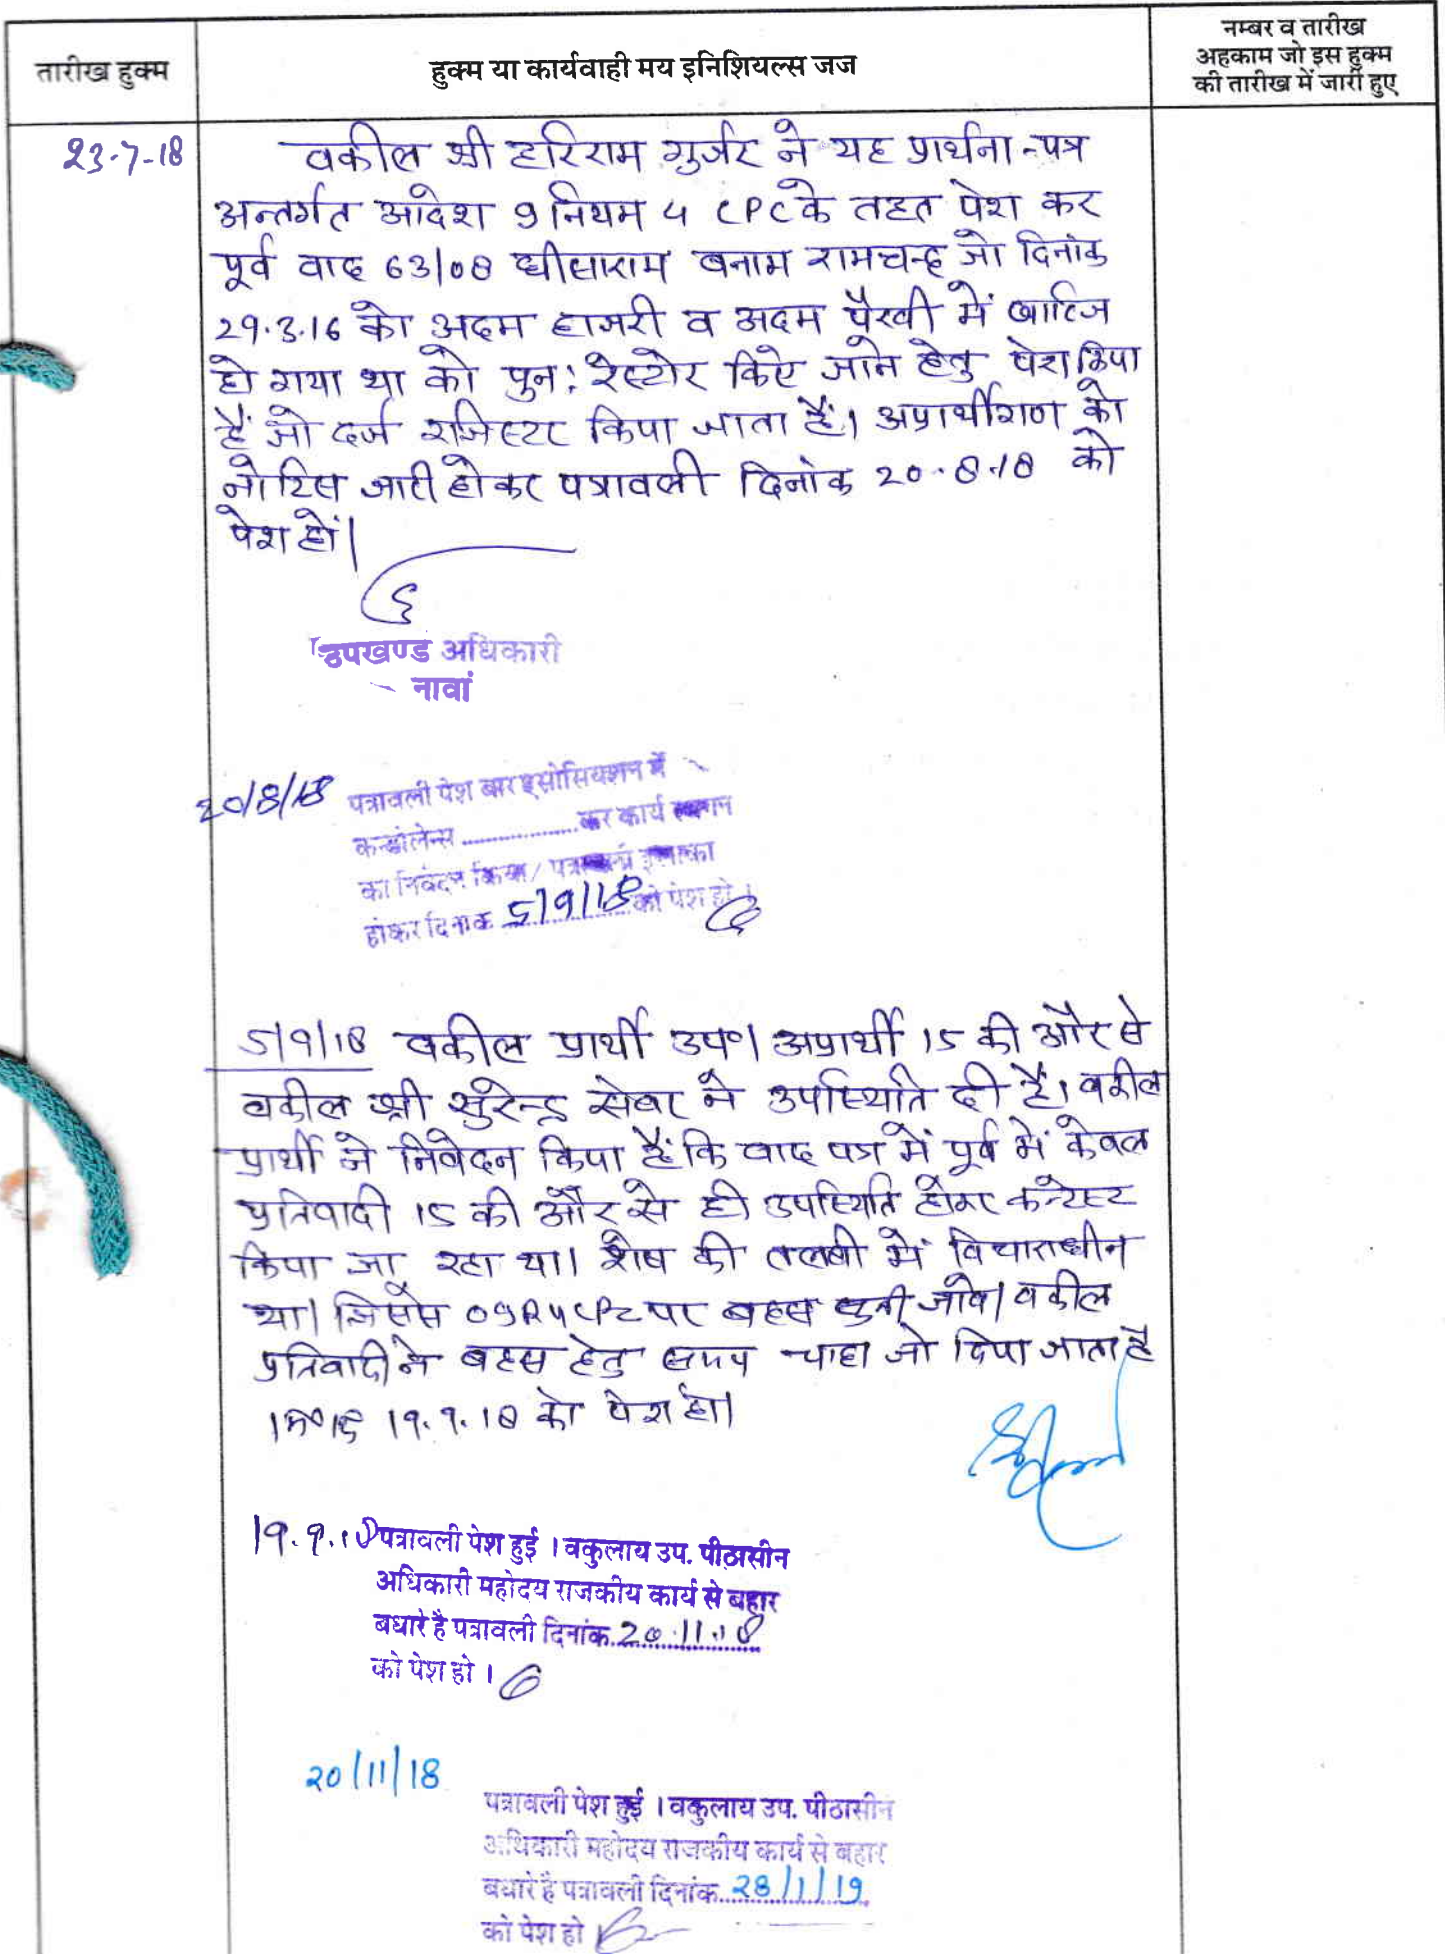 तारीख हुक्म
हुक्म या कार्यवाही मय इनिशियल्स जज
नम्बर व तारीख
अहकाम जो इस हुक्म
की तारीख में जारी हुए
23-7-18
वकील श्री हरिराम गुर्जर ने यह प्रार्थना-पत्र
अन्तर्गत आदेश 9 नियम 4 CPC के तहत पेश कर
पूर्व वाद 63/08 घीसाराम बनाम रामचन्द्र जो दिनांक
29.3.16 को अदम हाजरी व अदम पैरवी में खारिज
हो गया था को पुनः रेस्टोर किए जाने हेतु पेश किया
हैं जो दर्ज रजिस्टर किया जाता हैं। अप्रार्थीगण को
नोटिस जारी होकर पत्रावली दिनांक 20-8-18 को
पेश हों।
उपखण्ड अधिकारी
नावां
20/8/18
पत्रावली पेश बार एसोसियशन में
कन्डोलेन्स .................. कर कार्य स्थगन
का निवेदन किया/ पत्रावली
होकर दिनांक 5/9/18 को पेश हो।
5/9/18 वकील प्रार्थी उप०। अप्रार्थी 15 की और से
वकील श्री सुरेन्द्र सेवर ने उपस्थिति दी हैं। वकील
प्रार्थी ने निवेदन किया हैं कि वाद पत्र में पूर्व में केवल
प्रतिवादी 15 की और से ही उपस्थिति होकर कन्टेस्ट
किया जा रहा था। शेष की तलबी में विचाराधीन
था। जिससे O9R4CPC पर बहस सुनी जावे। वकील
प्रतिवादी ने बहस हेतु समय चाहा जो दिया जाता है
19.9.18 को पेश हो।
19.9.18 पत्रावली पेश हुई । वकुलाय उप. पीठासीन
अधिकारी महोदय राजकीय कार्य से बहार
बधारे है पत्रावली दिनांक 20.11.18
को पेश हो ।
20/11/18
पत्रावली पेश हुई । वकुलाय उप. पीठासीन
अधिकारी महोदय राजकीय कार्य से बहार
बधारे है पत्रावली दिनांक 28/1/19
को पेश हो